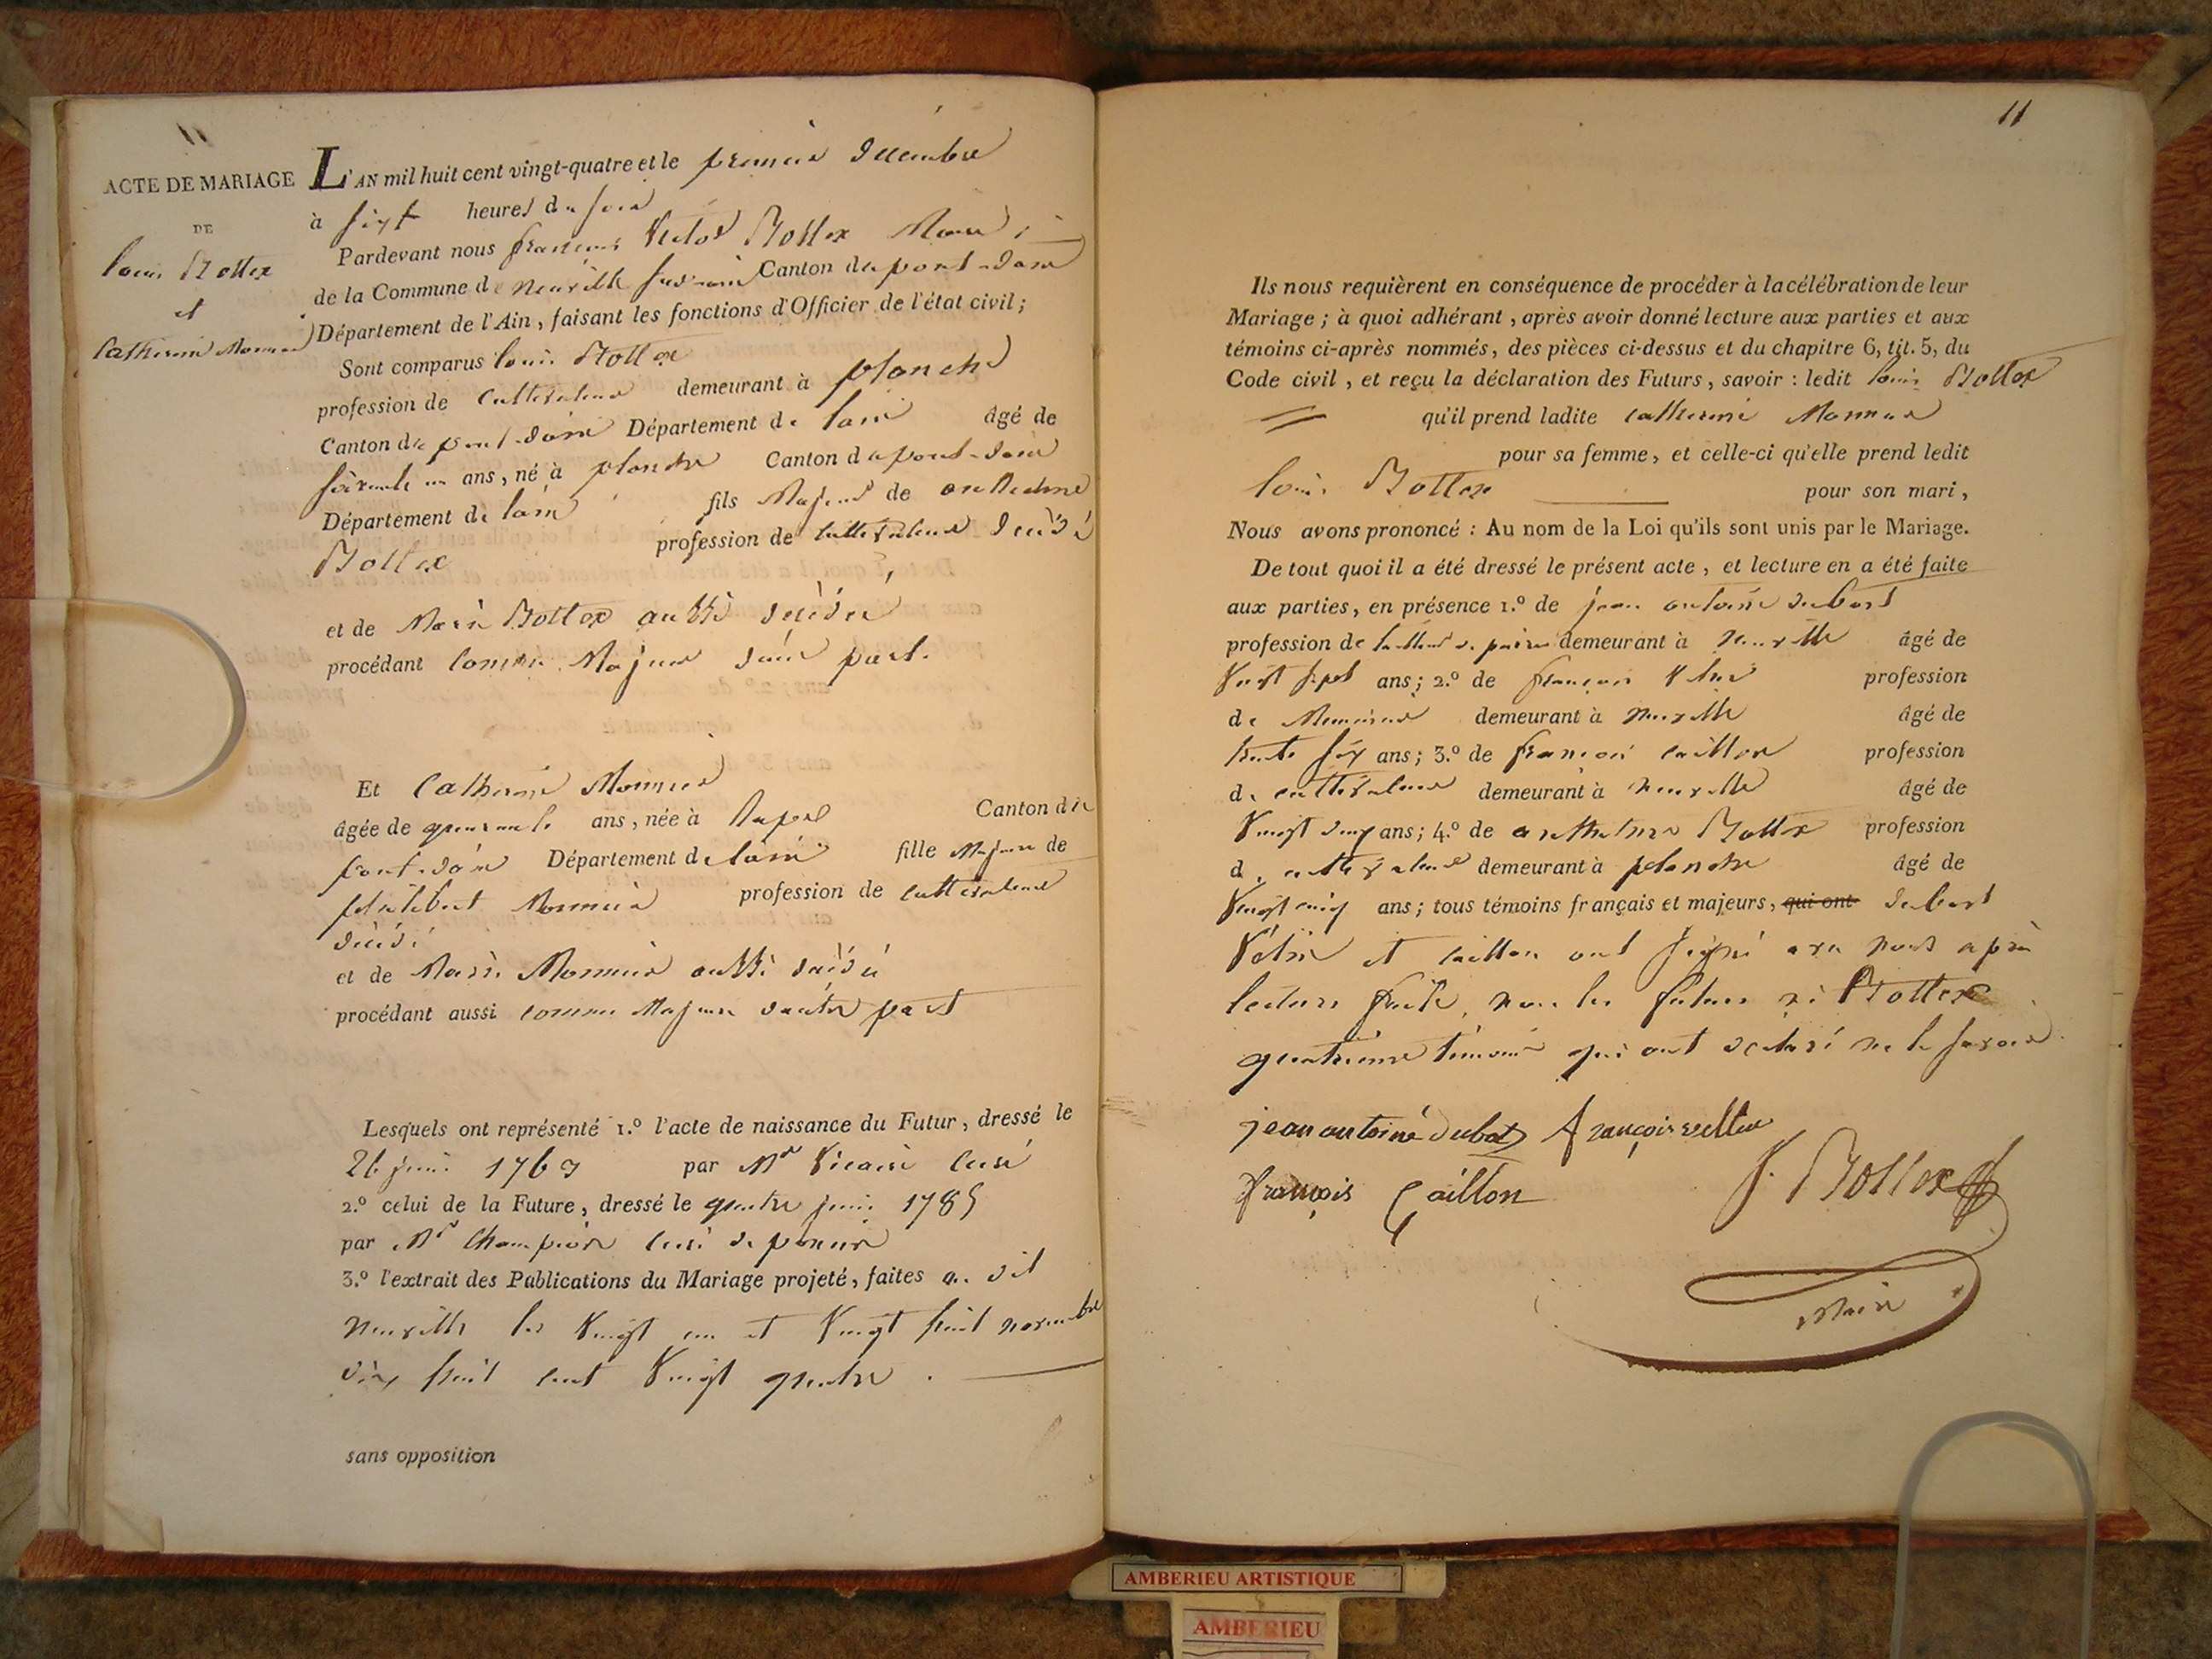 11
ACTE DE MARIAGE
DE
louis Bottex
et
Catherine Monnier
L'AN mil huit cent vingt-quatre et le premier décembre
à sept heures du soir
Pardevant nous françois Victor Bottex Maire
de la Commune de neuville sur ain Canton du pont-dain
Département de l'Ain, faisant les fonctions d'Officier de l'état civil;
Sont comparus louis Bottex
profession de Cultivateur demeurant à planche
Canton du pont-dain Département de lain âgé de
soixante un ans, né à planche Canton du pont-dain
Département de lain fils Majeur de anthelme
Bottex profession de cultivateur décédé
et de Marie Bottex aussi décédée
procédant Comme Majeur d'une part.
Et Catherine Monnier
âgée de quarante ans, née à Canton du
pont-dain Département de lain fille Majeure de
philibert Monnier profession de cultivateur
décédé
et de Marie Monnier aussi décédée
procédant aussi comme Majeure d'autre part
Lesquels ont représenté 1.º l'acte de naissance du Futur, dressé le
26 juin 1763 par Mr Vicaire Curé
2.º celui de la Future, dressé le quatre juin 1785
par Mr Champion Curé de
3.º l'extrait des Publications du Mariage projeté, faites au dit
neuville les Vingt un et Vingt huit novembre
dix huit cent Vingt quatre .
sans opposition
11
Ils nous requièrent en conséquence de procéder à la célébration de leur
Mariage; à quoi adhérant, après avoir donné lecture aux parties et aux
témoins ci-après nommés, des pièces ci-dessus et du chapitre 6, tit. 5, du
Code civil, et reçu la déclaration des Futurs, savoir : ledit louis Bottex
qu'il prend ladite catherine Monnier
pour sa femme, et celle-ci qu'elle prend ledit
louis Bottex pour son mari,
Nous avons prononcé : Au nom de la Loi qu'ils sont unis par le Mariage.
De tout quoi il a été dressé le présent acte, et lecture en a été faite
aux parties, en présence 1.º de jean antoine dubost
profession de tailleur de pierre demeurant à neuville âgé de
Vingt sept ans; 2.º de françois Vettier profession
de Menuisier demeurant à neuville âgé de
trente six ans; 3.º de françois caillon profession
de cultivateur demeurant à neuville âgé de
Vingt deux ans; 4.º de anthelme Bottex profession
de cultivateur demeurant à planche âgé de
Vingt cinq ans; tous témoins français et majeurs, qui ont dubost
et caillon ont signé avec nous après
lecture faite, non les futurs ni Bottex
quatrième témoin qui ont déclaré ne le savoir.
jean antoine dubost françois vettier
françois Caillon f. Bottex
Maire
AMBERIEU ARTISTIQUE
AMBERIEU